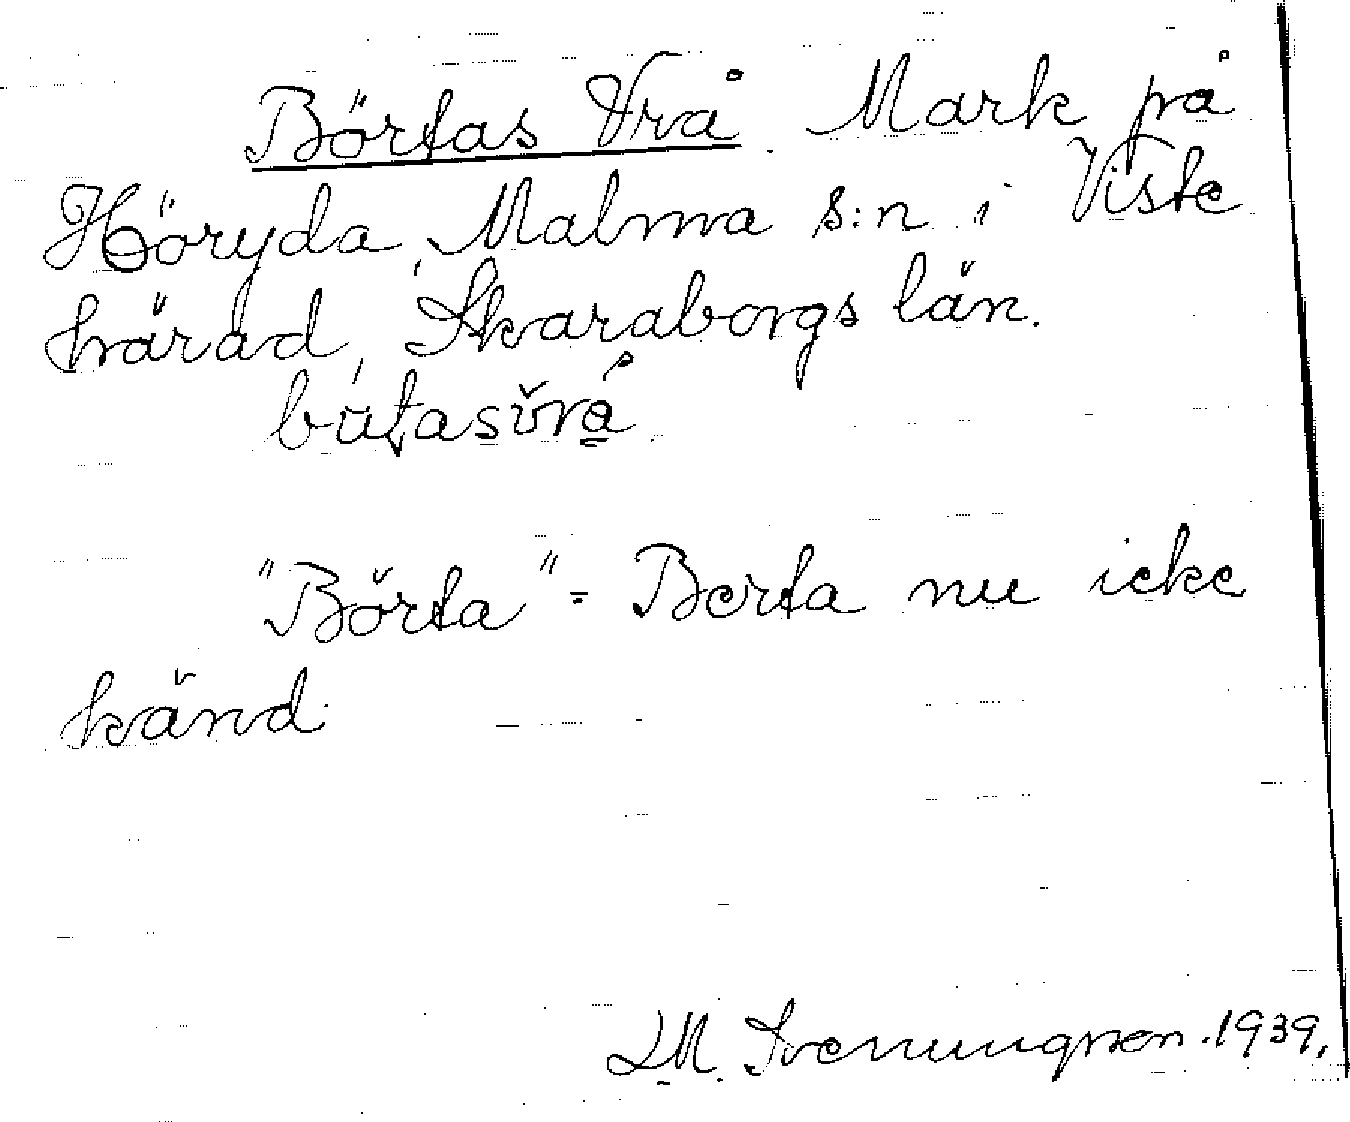 Börtas Vrå. Mark på
Höryda, Malma s:n i Viste
härad, Skaraborgs län.
"Börta" = Berta nu icke
känd.
LM. Svenungsson. 1939.